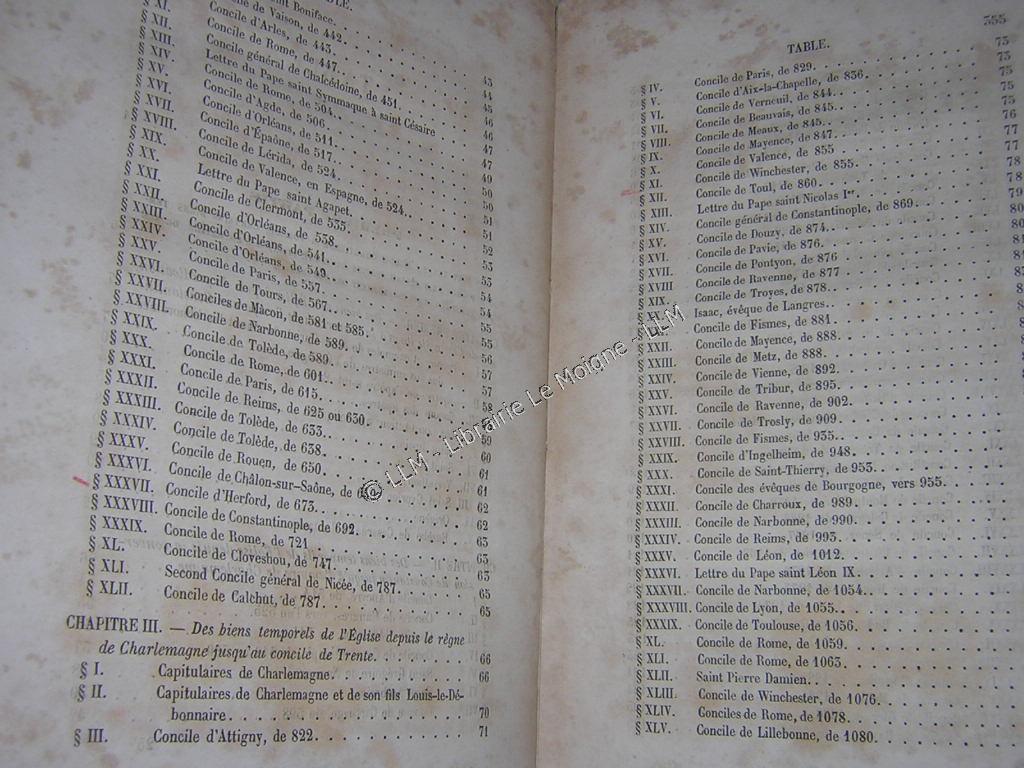 TABLE.
nt Boniface.
de Vaison, de 442. 43
Concile d'Arles, de 443. 44
§ XI. Concile de Rome, de 447. 45
§ XII. Concile général de Chalcédoine, de 451. 46
§ XIII. Lettre du Pape saint Symmaque à saint Césaire 46
§ XIV. Concile de Rome, de 504. 47
§ XV. Concile d'Agde, de 506. 47
§ XVI. Concile d'Orléans, de 511. 49
§ XVII. Concile d'Épaône, de 517. 50
§ XVIII. Concile de Lérida, de 524. 50
§ XIX. Concile de Valence, en Espagne, de 524. 51
§ XX. Lettre du Pape saint Agapet. 51
§ XXI. Concile de Clermont, de 535. 52
§ XXII. Concile d'Orléans, de 538. 53
§ XXIII. Concile d'Orléans, de 541. 53
§ XXIV. Concile d'Orléans, de 549. 54
§ XXV. Concile de Paris, de 557. 54
§ XXVI. Concile de Tours, de 567. 55
§ XXVII. Conciles de Mâcon, de 581 et 585. 55
§ XXVIII. Concile de Narbonne, de 589. 56
§ XXIX. Concile de Tolède, de 589. 57
§ XXX. Concile de Rome, de 601. 57
§ XXXI. Concile de Paris, de 615. 58
§ XXXII. Concile de Reims, de 625 ou 630. 59
§ XXXIII. Concile de Tolède, de 633. 60
§ XXXIV. Concile de Tolède, de 638. 61
§ XXXV. Concile de Rouen, de 650. 61
§ XXXVI. Concile de Châlon-sur-Saône, de 62
§ XXXVII. Concile d'Herford, de 673. 62
§ XXXVIII. Concile de Constantinople, de 692. 63
§ XXXIX. Concile de Rome, de 721 63
§ XL. Concile de Cloveshou, de 747. 63
§ XLI. Second Concile général de Nicée, de 787. 65
§ XLII. Concile de Calchut, de 787. 65
CHAPITRE III. — Des biens temporels de l'Église depuis le règne
de Charlemagne jusqu'au concile de Trente. 66
§ I. Capitulaires de Charlemagne. 66
§ II. Capitulaires de Charlemagne et de son fils Louis-le-Dé-
bonnaire. 70
§ III. Concile d'Attigny, de 822. 71
TABLE. 355
§ IV. Concile de Paris, de 829. 73
§ V. Concile d'Aix-la-Chapelle, de 836. 73
§ VI. Concile de Verneuil, de 844. 75
§ VII. Concile de Beauvais, de 845. 75
§ VIII. Concile de Meaux, de 845. 75
§ IX. Concile de Mayence, de 847. 76
§ X. Concile de Valence, de 855 77
§ XI. Concile de Winchester, de 855. 77
§ XII. Concile de Toul, de 860. 78
§ XIII. Lettre du Pape saint Nicolas Ier. 78
§ XIV. Concile général de Constantinople, de 869. 79
§ XV. Concile de Douzy, de 874. 80
§ XVI. Concile de Pavie, de 876. 80
§ XVII. Concile de Pontyon, de 876
§ XVIII Concile de Ravenne, de 877
§ XIX. Concile de Troyes, de 878.
§ XX. Isaac, évêque de Langres.
Concile de Fismes, de 881
§ XXII. Concile de Mayence, de 888.
§ XXIII. Concile de Metz, de 888.
§ XXIV. Concile de Vienne, de 892.
§ XXV. Concile de Tribur, de 895.
§ XXVI. Concile de Ravenne, de 902
§ XXVII. Concile de Trosly, de 909
§ XXVIII. Concile de Fismes, de 935.
§ XXIX. Concile d'Ingelheim, de 948.
§ XXX. Concile de Saint-Thierry, de 953.
§ XXXI. Concile des évêques de Bourgogne, vers 955.
§ XXXII. Concile de Charroux, de 989.
§ XXXIII. Concile de Narbonne, de 990.
§ XXXIV. Concile de Reims, de 993.
§ XXXV. Concile de Léon, de 1012.
§ XXXVI. Lettre du Pape saint Léon IX.
§ XXXVII. Concile de Narbonne, de 1054.
§ XXXVIII. Concile de Lyon, de 1055.
§ XXXIX. Concile de Toulouse, de 1056.
§ XL. Concile de Rome, de 1059.
§ XLI. Concile de Rome, de 1063.
§ XLII. Saint Pierre Damien.
§ XLIII. Concile de Winchester, de 1076.
§ XLIV. Conciles de Rome, de 1078.
§ XLV. Concile de Lillebonne, de 1080.
© LLM - Librairie Le Moigne - LLM